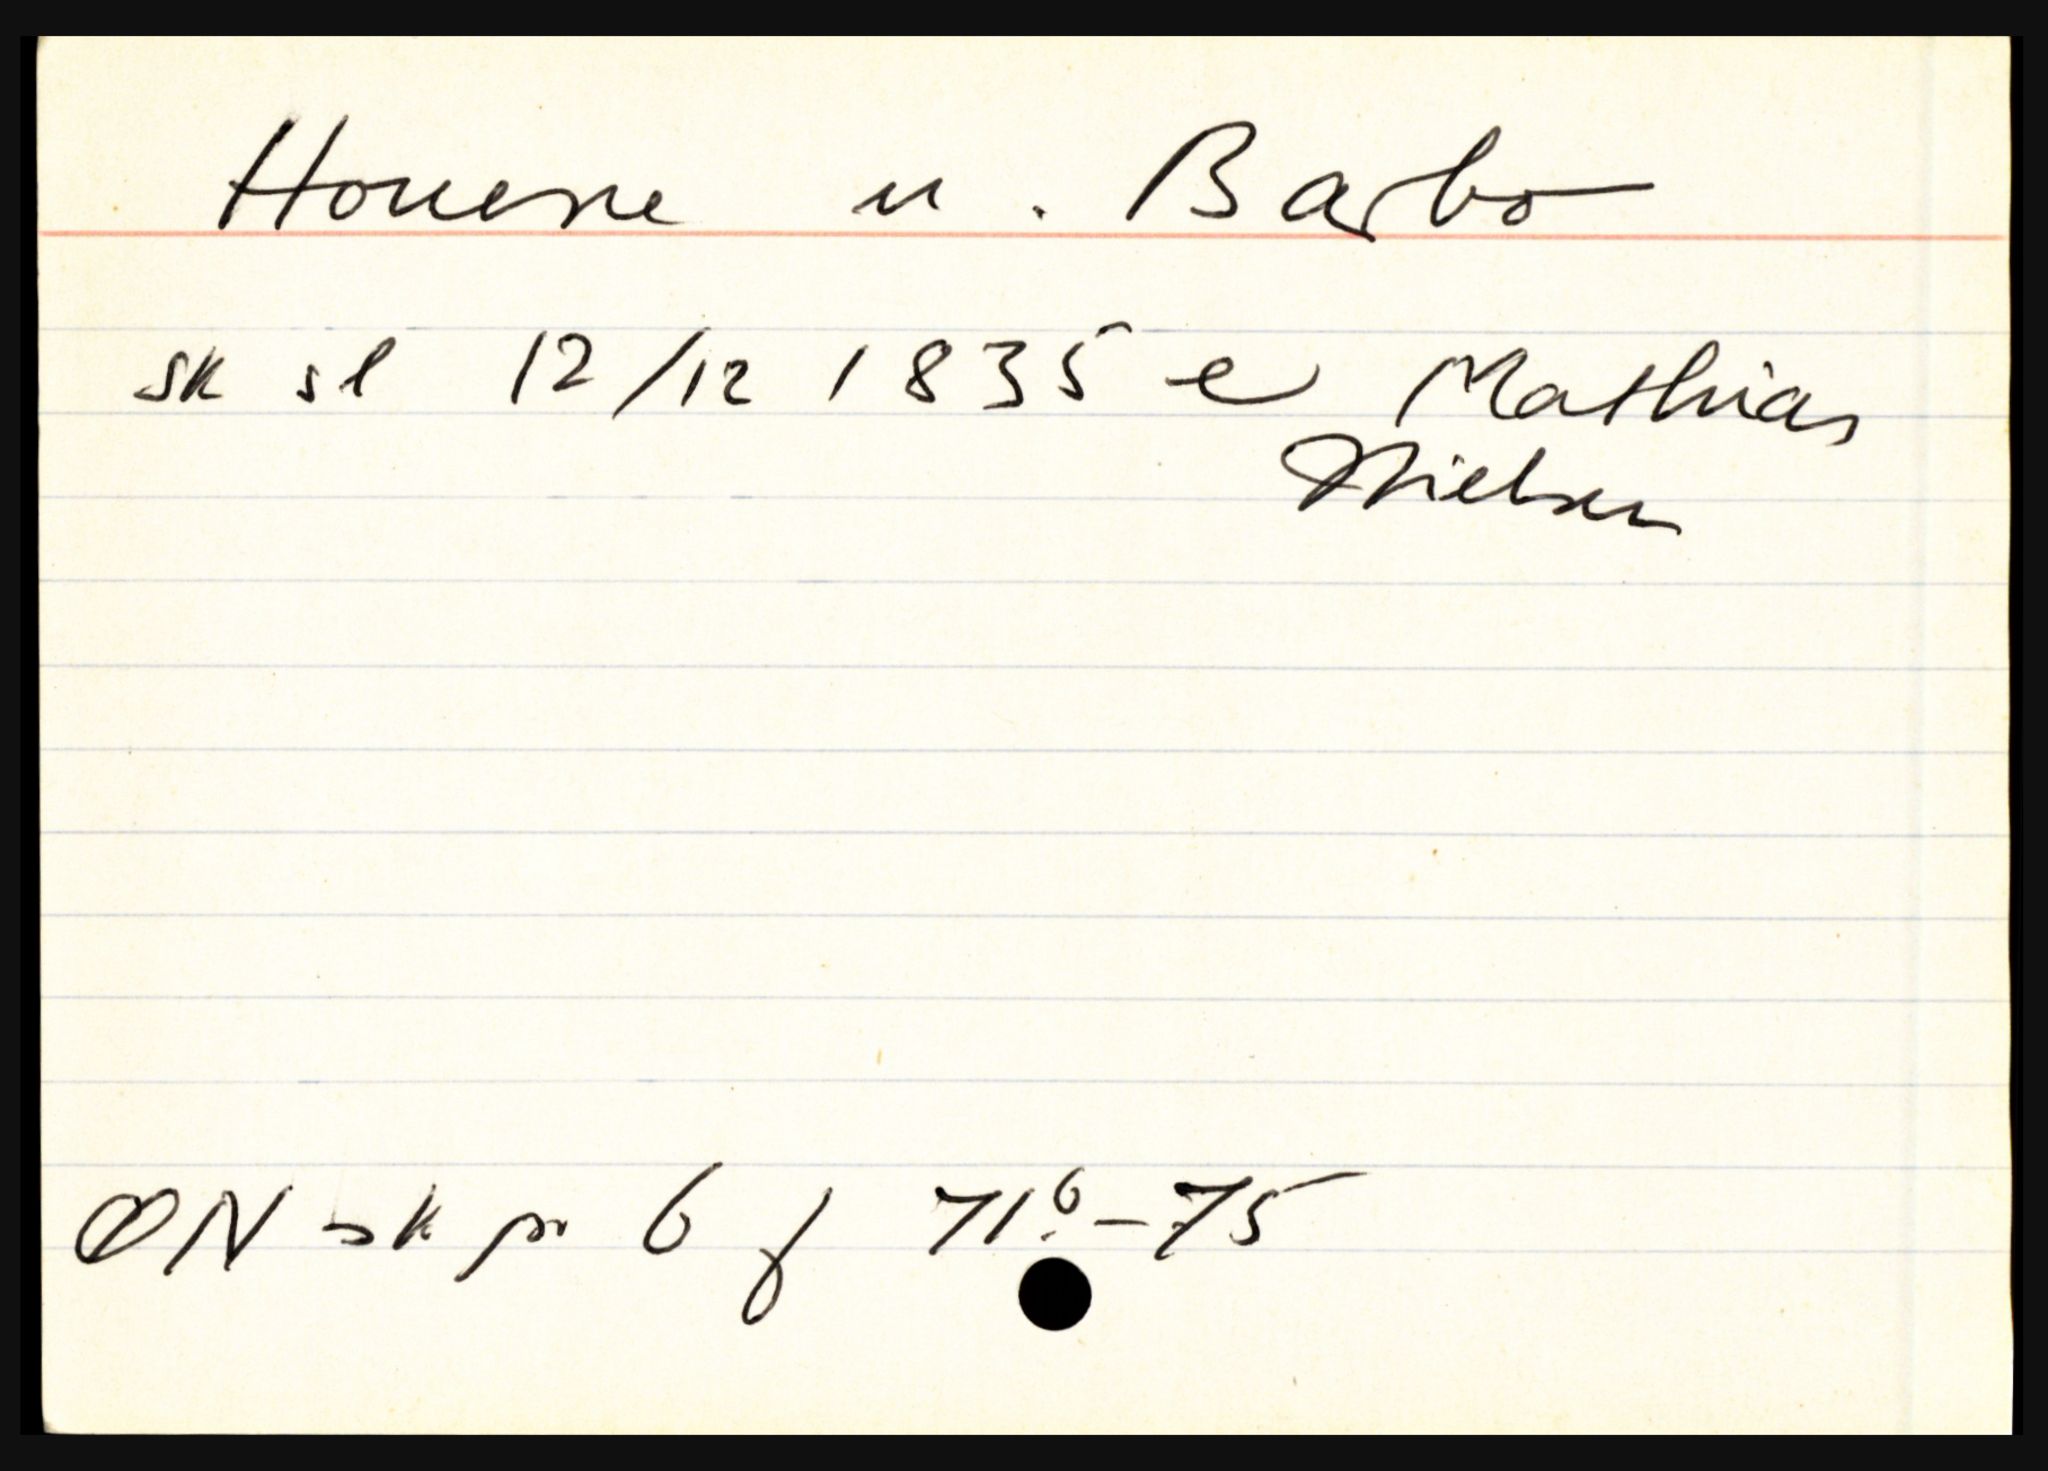 Houene u. Barbo
sk sl 12/12 1835 e Mathias
Nielsen
ØN sk pr 6 f 71b-75